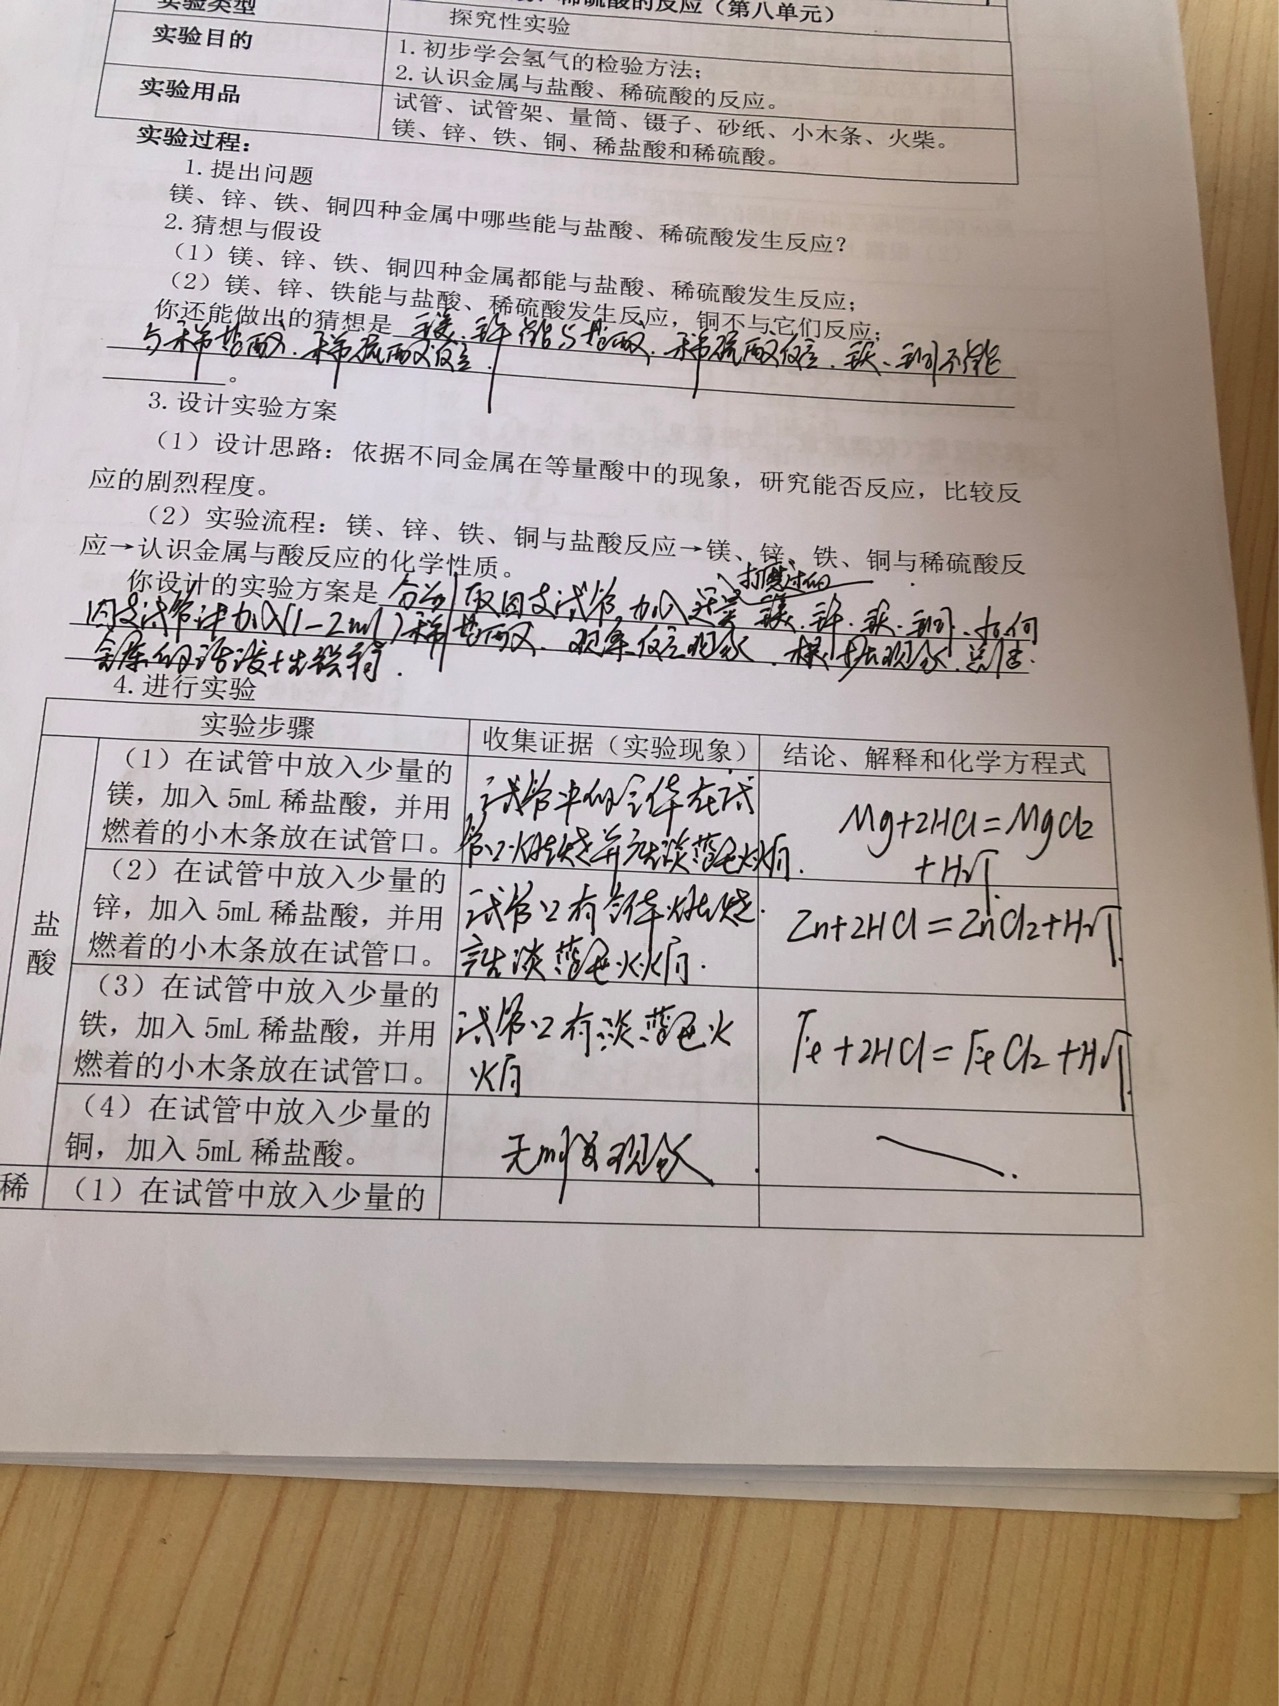 实验类型
稀硫酸的反应（第八单元）
探究性实验
实验目的
1.初步学会氢气的检验方法；
2.认识金属与盐酸、稀硫酸的反应。
实验用品
试管、试管架、量筒、镊子、砂纸、小木条、火柴。
镁、锌、铁、铜、稀盐酸和稀硫酸。
实验过程：
1.提出问题
镁、锌、铁、铜四种金属中哪些能与盐酸、稀硫酸发生反应？
2.猜想与假设
（1）镁、锌、铁、铜四种金属都能与盐酸、稀硫酸发生反应；
（2）镁、锌、铁能与盐酸、稀硫酸发生反应，铜不与它们反应；
你还能做出的猜想是 镁、锌能与盐酸、稀硫酸反应、铁、铜不能
与稀盐酸、稀硫酸反应.
。
3.设计实验方案
（1）设计思路：依据不同金属在等量酸中的现象，研究能否反应，比较反
应的剧烈程度。
（2）实验流程：镁、锌、铁、铜与盐酸反应→镁、锌、铁、铜与稀硫酸反
应→认识金属与酸反应的化学性质。
打磨过的
你设计的实验方案是 分别取四支试管,加入适量镁、锌、铁、铜、
四支试管 加入(1-2ml)稀盐酸、观察反应现象、根据现象
金属的活泼
4.进行实验
实验步骤
收集证据（实验现象）
结论、解释和化学方程式
盐酸
（1）在试管中放入少量的
镁，加入 5mL 稀盐酸，并用
燃着的小木条放在试管口。
试管中的气体在试
管口燃烧并产生淡蓝色火焰.
Mg+2HCl=MgCl2
+H2↑
（2）在试管中放入少量的
锌，加入 5mL 稀盐酸，并用
燃着的小木条放在试管口。
试管口有气体燃烧.
产生淡蓝色火焰.
Zn+2HCl=ZnCl2+H2↑
（3）在试管中放入少量的
铁，加入 5mL 稀盐酸，并用
燃着的小木条放在试管口。
试管口有淡蓝色火
焰
Fe+2HCl=FeCl2+H2↑
（4）在试管中放入少量的
铜，加入 5mL 稀盐酸。
无明显现象
稀
（1）在试管中放入少量的